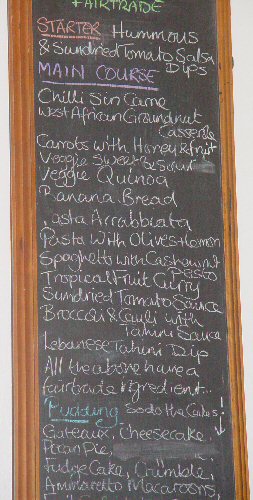 FAIRTRADE
STARTER Hummous
& Sundried Tomato Salsa
Dips
MAIN COURSE
Chilli Sin Carne
West African Groundnut
Casserole
Carrots with Honey & fruit
Veggie Sweet & Sour
Veggie Quinoa
Banana Bread
Pasta Arrabbiata
Pasta With Olives + Lemon
Spaghetti with Cashewnut
Pesto
Tropical Fruit Curry
Sundried Tomato Sauce
Broccoli & Cauli with
Tahini Sauce
Lebanese Tahini Dip
All the above have a
fairtrade ingredient..
Pudding Soda the Cakes!
Gateaux, Cheesecake,
Pecan Pie,
Fudge Cake, Crumble,
Ammaretto Macaroons,